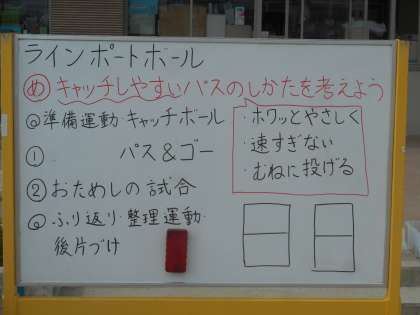 ラインポートボール
め キャッチしやすいパスのしかたを考えよう
◎準備運動・キャッチボール
① パス&ゴー
② おためしの試合
◎ふり返り・整理運動・
後片づけ
・ホワッとやさしく
・速すぎない
・むねに投げる